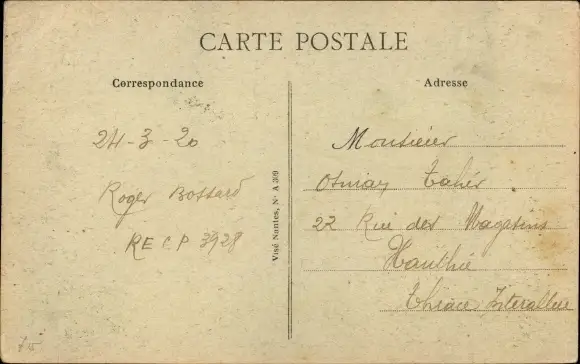 CARTE POSTALE
Correspondance
24-3-20
Roger Bossard
RECP 3928
Visé Nantes, No A 309
Adresse
Monsieur
Osman Tahir
22 Rue des Magasins
Xanthie
Thrace Interalliée